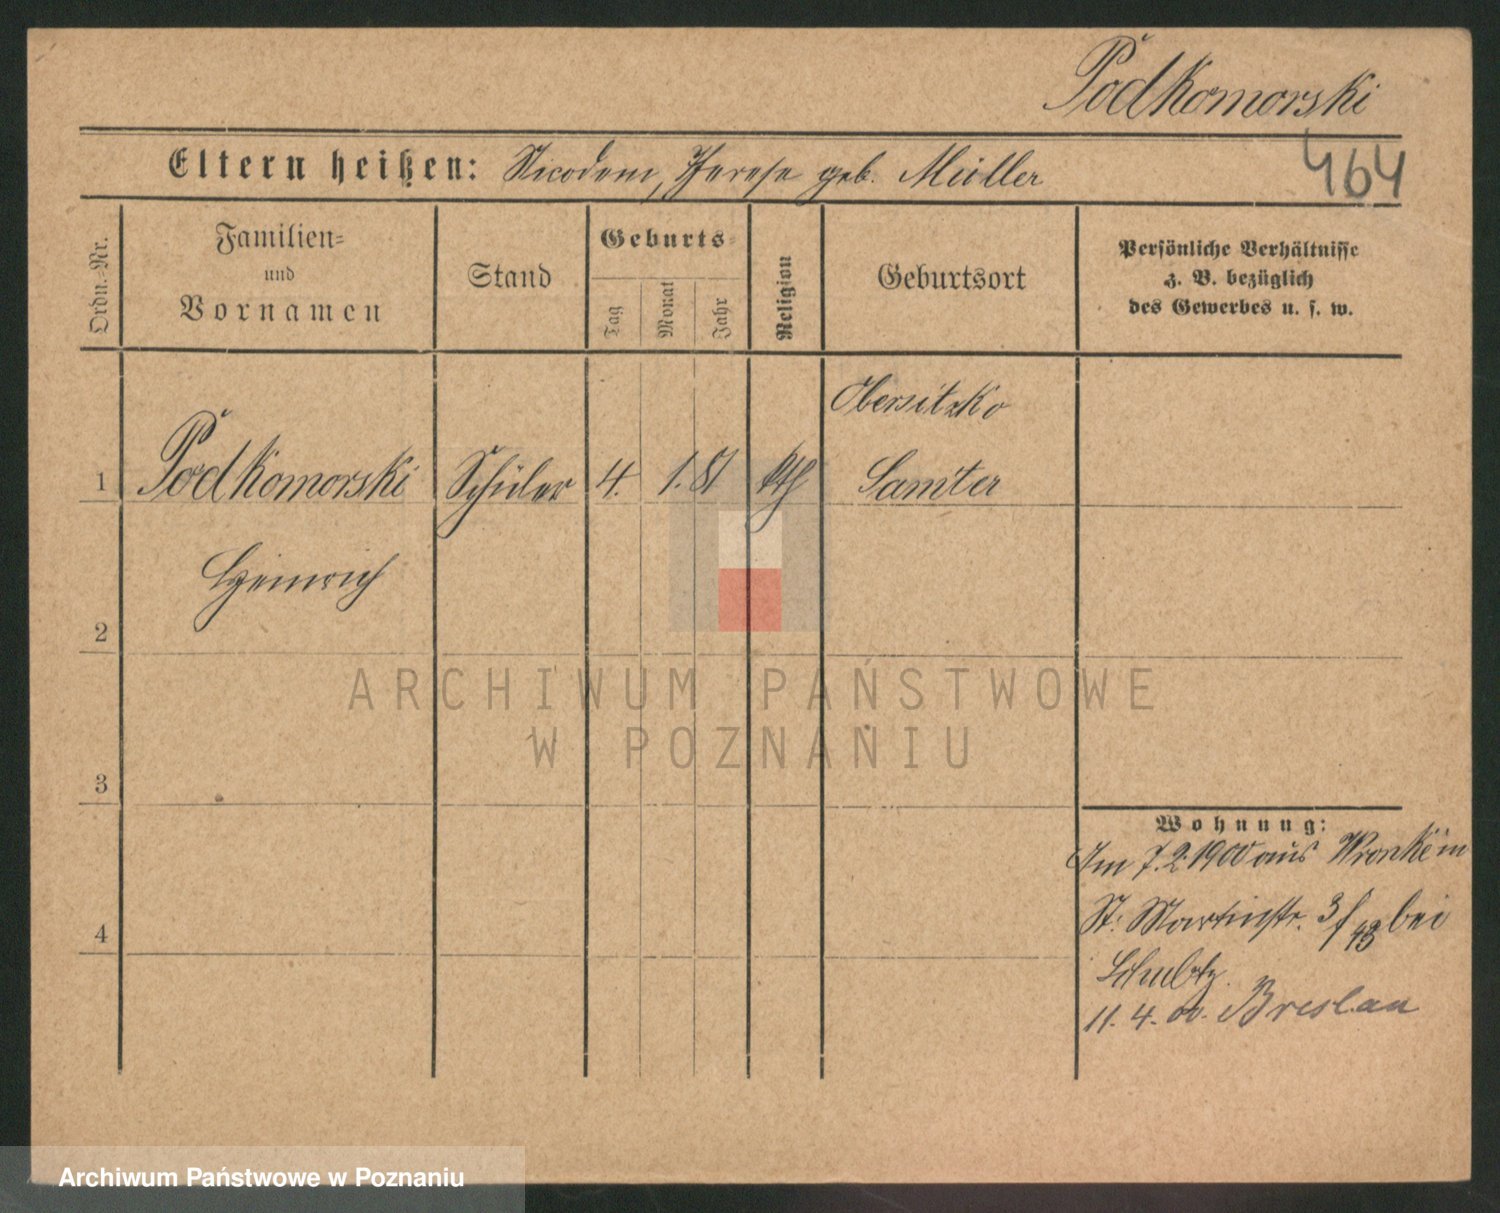 Podkomorski
Eltern heißen: Nicodem, Therese geb. Müller
464
Ordn.-Nr.
Familien-
und
Vornamen
Stand
Geburts-
Tag
Monat
Jahr
Religion
Geburtsort
Persönliche Verhältnisse
z. B. bezüglich
des Gewerbes u. s. w.
Obersitzko
1 Podkomorski Schüler 4. 1. 81 kth Samter
Heinrich
2
3
4
Wohnung:
Am 7.2.1900 aus Wronke in
St. Martinstr. 3/43 bei
11. 4. 00. Breslau
ARCHIWUM PAŃSTWOWE
W POZNANIU
Archiwum Państwowe w Poznaniu